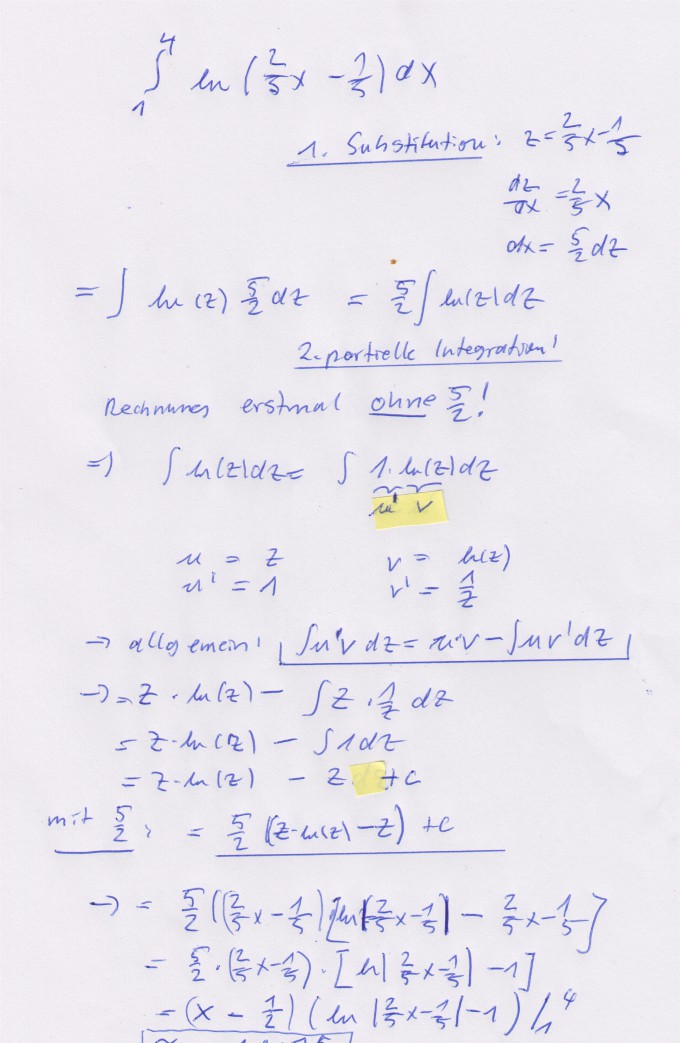 ∫₁⁴ ln (2/5 x - 1/5) dx
1. Substitution: z = 2/5 x - 1/5
dz/dx = 2/5 x
dx = 5/2 dz
= ∫ ln (z) 5/2 dz = 5/2 ∫ ln(z) dz
2. partielle Integration!
Rechnung erstmal ohne 5/2!
⇒ ∫ ln(z) dz = ∫ 1 · ln(z) dz
u' v
u = z v = ln(z)
u' = 1 v' = 1/z
→ allgemein: ∫ u'v dz = u·v - ∫ u v' dz
→ = z · ln(z) - ∫ z · 1/z dz
= z · ln(z) - ∫ 1 dz
= z · ln(z) - z + c
mit 5/2: = 5/2 (z·ln(z) - z) + c
→ = 5/2 ((2/5 x - 1/5) [ln|2/5 x - 1/5| - 2/5 x - 1/5]
= 5/2 · (2/5 x - 1/5) · [ln| 2/5 x - 1/5 | - 1]
= (x - 1/2) (ln |2/5 x - 1/5| - 1) |₁⁴